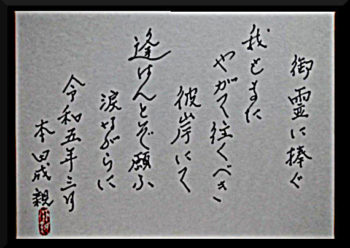 御霊に捧ぐ
我もまた
やがて往くべき
彼岸にて
逢はんとぞ願ふ
涙ながらに
令和五年三月
本田成親